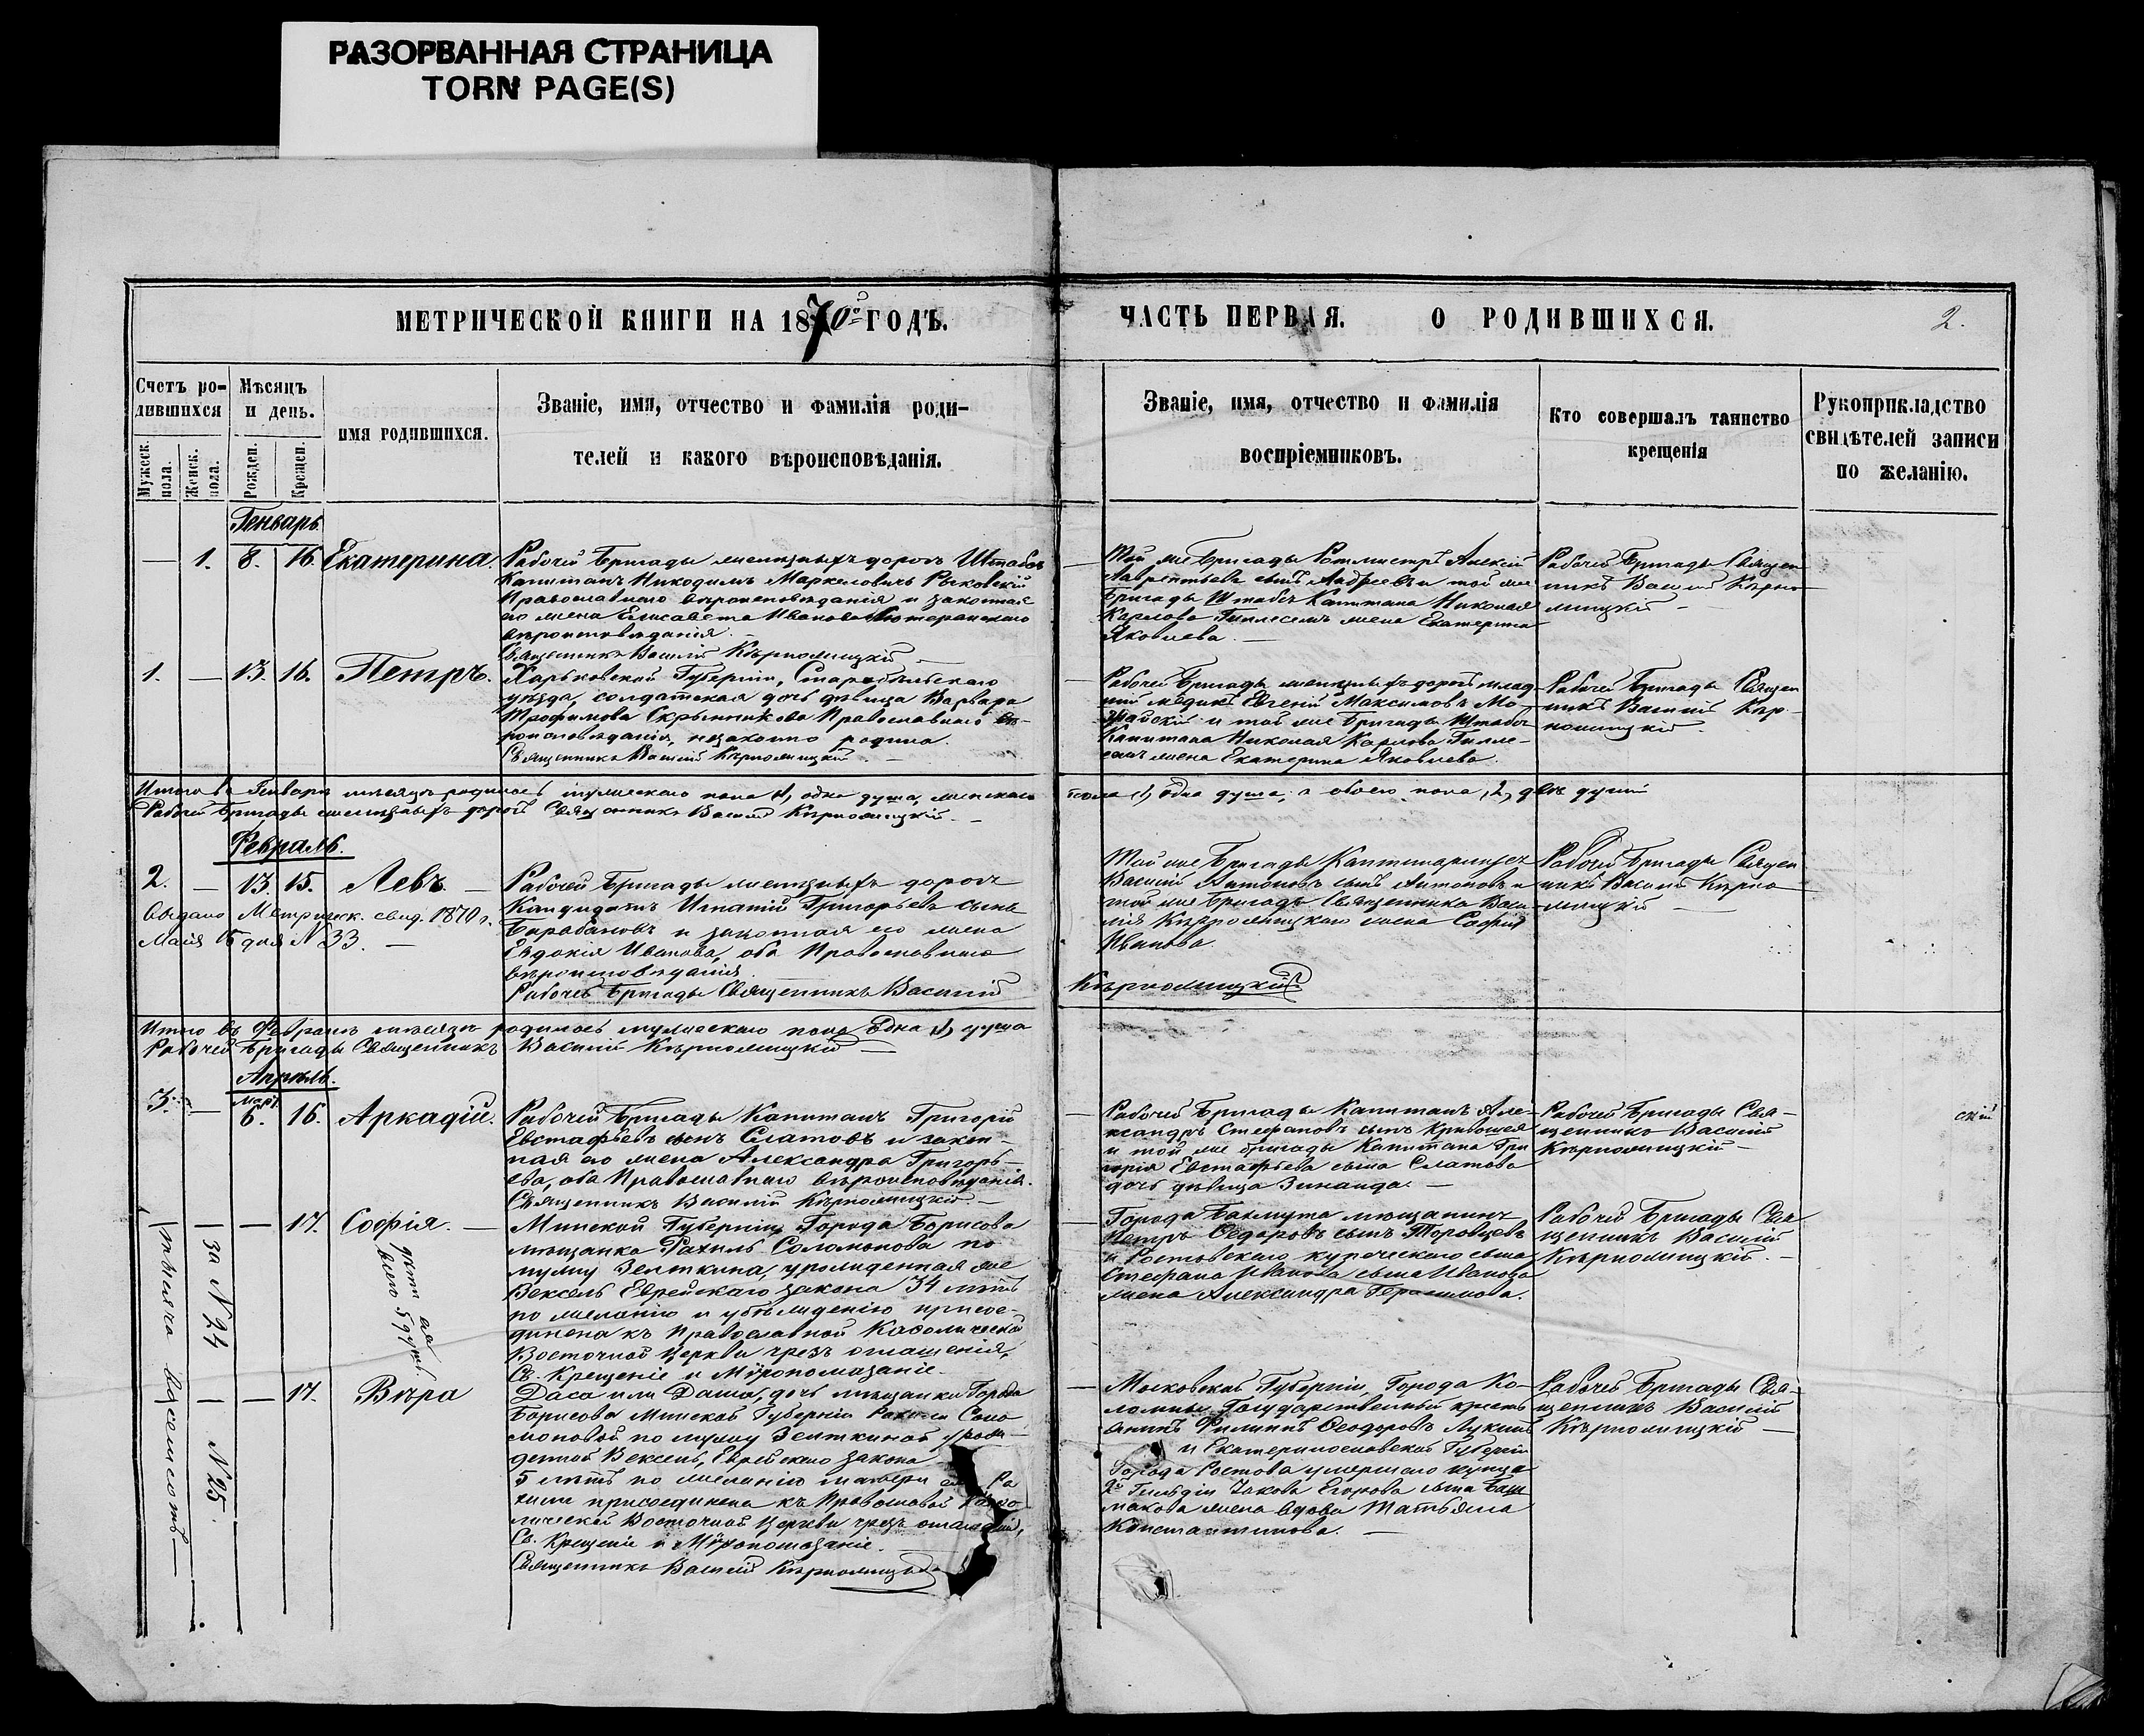 РАЗОРВАННАЯ СТРАНИЦА
TORN PAGE(S)
МЕТРИЧЕСКОЙ КНИГИ НА 1870й ГОДЪ.
ЧАСТЬ ПЕРВАЯ. О РОДИВШИХСЯ.
2.
Счетъ ро-
дившихся
Мужеск. пола.
Женск. пола.
Мѣсяцъ
и день.
Рожден.
Крещен.
имя родившихся.
Званіе, имя, отчество и фамилія роди-
телей и какого вѣроисповѣданія.
Званіе, имя, отчество и фамилія
воспріемниковъ.
Кто совершалъ таинство
крещенія
Рукоприкладство
свидѣтелей записи
по желанію.
Генварь
— 1. 8. 16. Екатерина.
Рабочей Бригады желѣзныхъ дорогъ Штабсъ
Капитанъ Никодимъ Маркеловичъ
Православнаго вѣроисповѣданія и законная
его жена Елисавета Иванова Лютеранскаго
вѣроисповѣданія.
Священникъ Василій Кѣрножицкій
Той же Бригады Ротмистръ Алексій
Лаврентьевъ сынъ Андреевъ и той же
Бригады Штабсъ Капитана Николая
Карлова Гиллесемъ жена Екатерина
Яковлева. —
Рабочей Бригады Священ
никъ Василій Кѣрно
жицкій —
1. — 13. 16. Петръ.
Харьковской Губерніи, Старобѣльскаго
уѣзда, солдатская дочь дѣвица Варвара
Трофимова Скрынникова Православнаго вѣ-
роисповѣданія, незаконно родила.
Священникъ Василій Кѣрножицкій —
Рабочей Бригады желѣзныхъ дорогъ млад
шій медикъ Евгеній Максимовъ Мо-
и той же Бригады Штабсъ
Капитана Николая Карлова Гилле-
семъ жена Екатерина Яковлева.
Рабочей Бригады Священ
никъ Василій Кѣр-
ножицкій.
Итого въ Генварѣ мѣсяцѣ родилось мужескаго пола 1, одна душа, женскаго
пола 1, одна душа, а обоего пола, 2, двѣ души
Рабочей Бригады желѣзныхъ дорогъ Священникъ Василій Кѣрножицкій. —
Февраль.
2. — 13. 15. Левъ. —
Выдано Метрическ. свид. 1870 г.
Майя 15 дня N 33. —
Рабочей Бригады желѣзныхъ дорогъ
Кандидатъ Игнатій Григорьевъ сынъ
Барабановъ и законная его жена
Евдокія Иванова, оба Православнаго
вѣроисповѣданія
Рабочей Бригады Священникъ Василій
Кѣрножицкій
Той же Бригады Каптинармусъ
Василій Антоновъ сынъ Антоновъ и
той же Бригады Священника Васи-
лія Кѣрножицкаго жена Софія
Иванова.
Рабочей Бригады Священ
никъ Василій Кѣрно
жицкій —
Итого въ Февралѣ мѣсяцѣ родилось мужескаго пола Одна 1, душа
Рабочей Бригады Священникъ Василій Кѣрножицкій —
Апрѣль.
Март.
3. — 6. 16. Аркадій.
Рабочей Бригады Капитанъ Григорій
Евстафьевъ сынъ Слатовъ и закон-
ная его жена Александра Григорь-
ева, оба Православнаго вѣроисповѣданія.
Священникъ Василій Кѣрножицкій. —
Рабочей Бригады Капитанъ Але-
ксандръ Стефановъ сынъ Кривошея
и той же бригады Капитана Гри
горія Евстафьева сына Слатова
дочь дѣвица Зинаида. —
Рабочей Бригады Свя-
щенникъ Василій
Кѣрножицкій —
— — 17. Софія. —
за N 24
Минской Губерніи, Города Борисова
мѣщанка Рахиль Соломонова по
мужу Зелткина, урожденная же
Вексель Еврейскаго закона 34 лѣтъ
по желанію и убѣжденію присое-
динена къ Православной Каѳолической
Восточной Церкви чрезъ оглашенія,
Св. Крещеніе и Мѵропомазаніе.
Города Бахмута мѣщанинъ
Петръ Ѳедоровъ сынъ
и Ростовскаго купеческаго сына
Стефана Иванова сына Иванова
жена Александра Герасимова.
Рабочей Бригады Свя
щенникъ Василій
Кѣрножицкій. —
— — 17. Вѣра
N 25.
Даса или Даша, дочь мѣщанки Города
Борисова Минской Губерніи Рахили Соло
моновой по мужу Зелткиной урож-
денной Вексель, Еврейскаго закона
5 лѣтъ по желанію матери ея Ра
хили присоединена къ Православной Каѳо
лической Восточной Церкви чрезъ оглашеній,
Св. Крещеніе и Мѵропомазаніе.
Священникъ Василій Кѣрножицкій
Московской Губерніи, Города Ко-
ломны Государственный кресть
янинъ Филипъ Ѳеодоровъ Лукинъ
и Екатеринославской Губерніи
Города Ростова умершаго купца
2й Гильдіи Іакова Егорова сына Баш
макова жена вдова Татьяна
Константинова. —
Рабочей Бригады Свя-
щенникъ Василій
Кѣрножицкій —